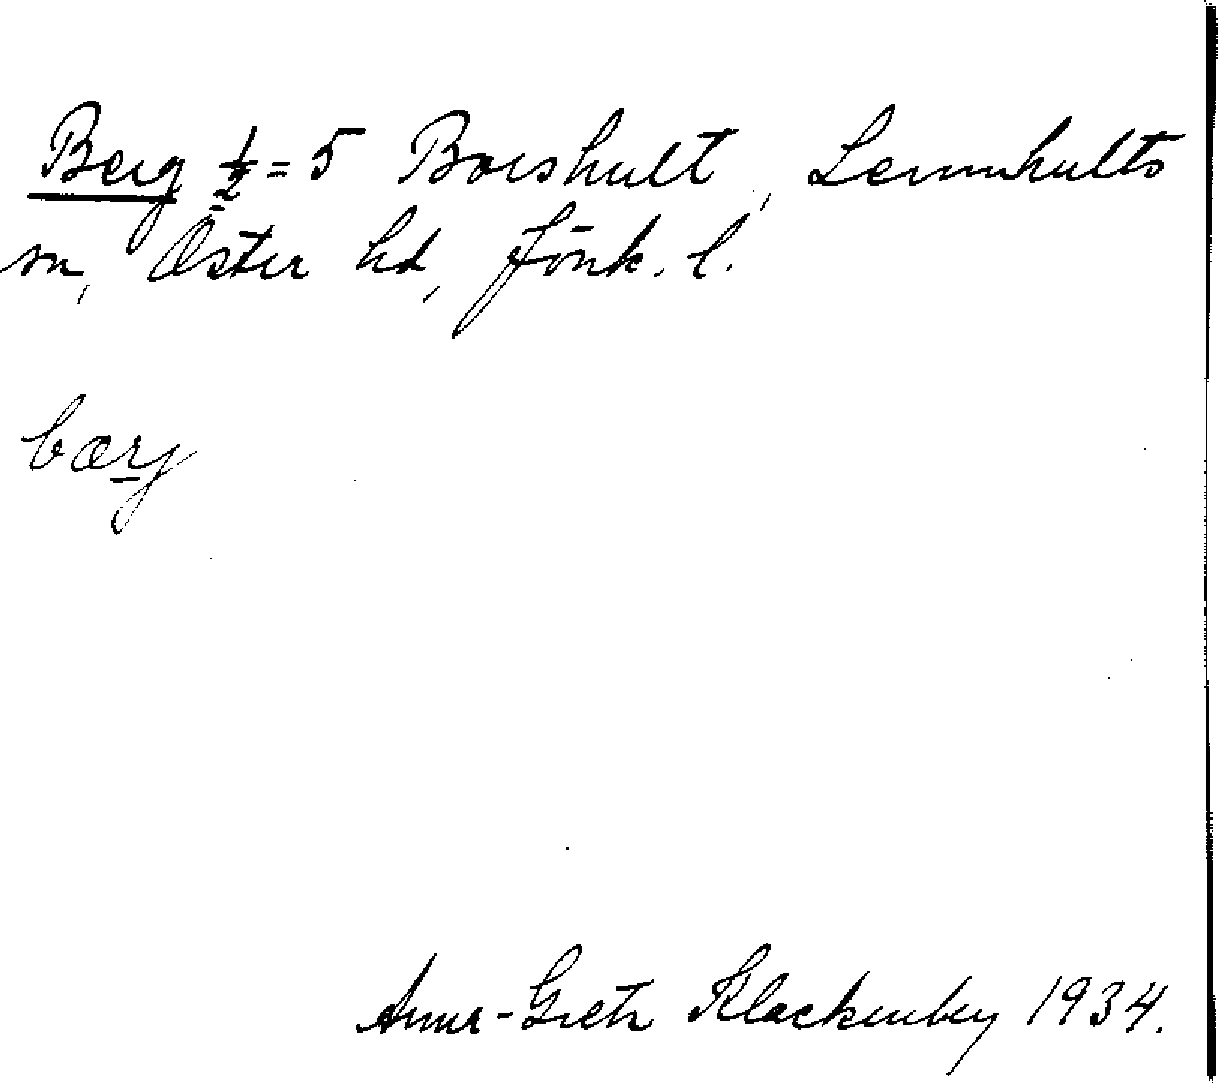 Berg ½ = 5 Borshult, Lemnhults
sn, Öster hd, Jönk. l.
bærj
Anna-Greta Klackenberg 1934.